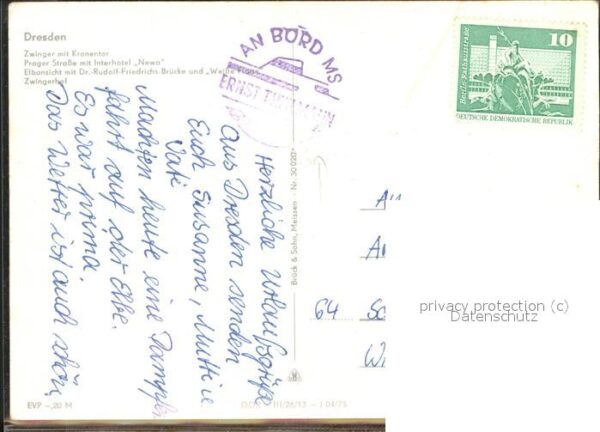 Dresden
Zwinger mit Kronentor
Prager Straße mit Interhotel „Newa“
Elbansicht mit Dr.-Rudolf-Friedrichs-Brücke und „Weiße
Zwingerhof
AN BORD MS
ERNST THÄLMANN
10
Berlin, Rathausstraße
DEUTSCHE DEMOKRATISCHE REPUBLIK
Herzliche Urlaubsgrüße
aus Dresden senden
Euch Susanne, Mutti u.
Vati
Machten heute eine Dampfer
fahrt auf der Elbe.
Es war prima.
Das Wetter ist auch schön,
Brück & Sohn, Meissen Nr. 30 020
64
privacy protection (c)
Datenschutz
EVP –,20 M
01/26/13